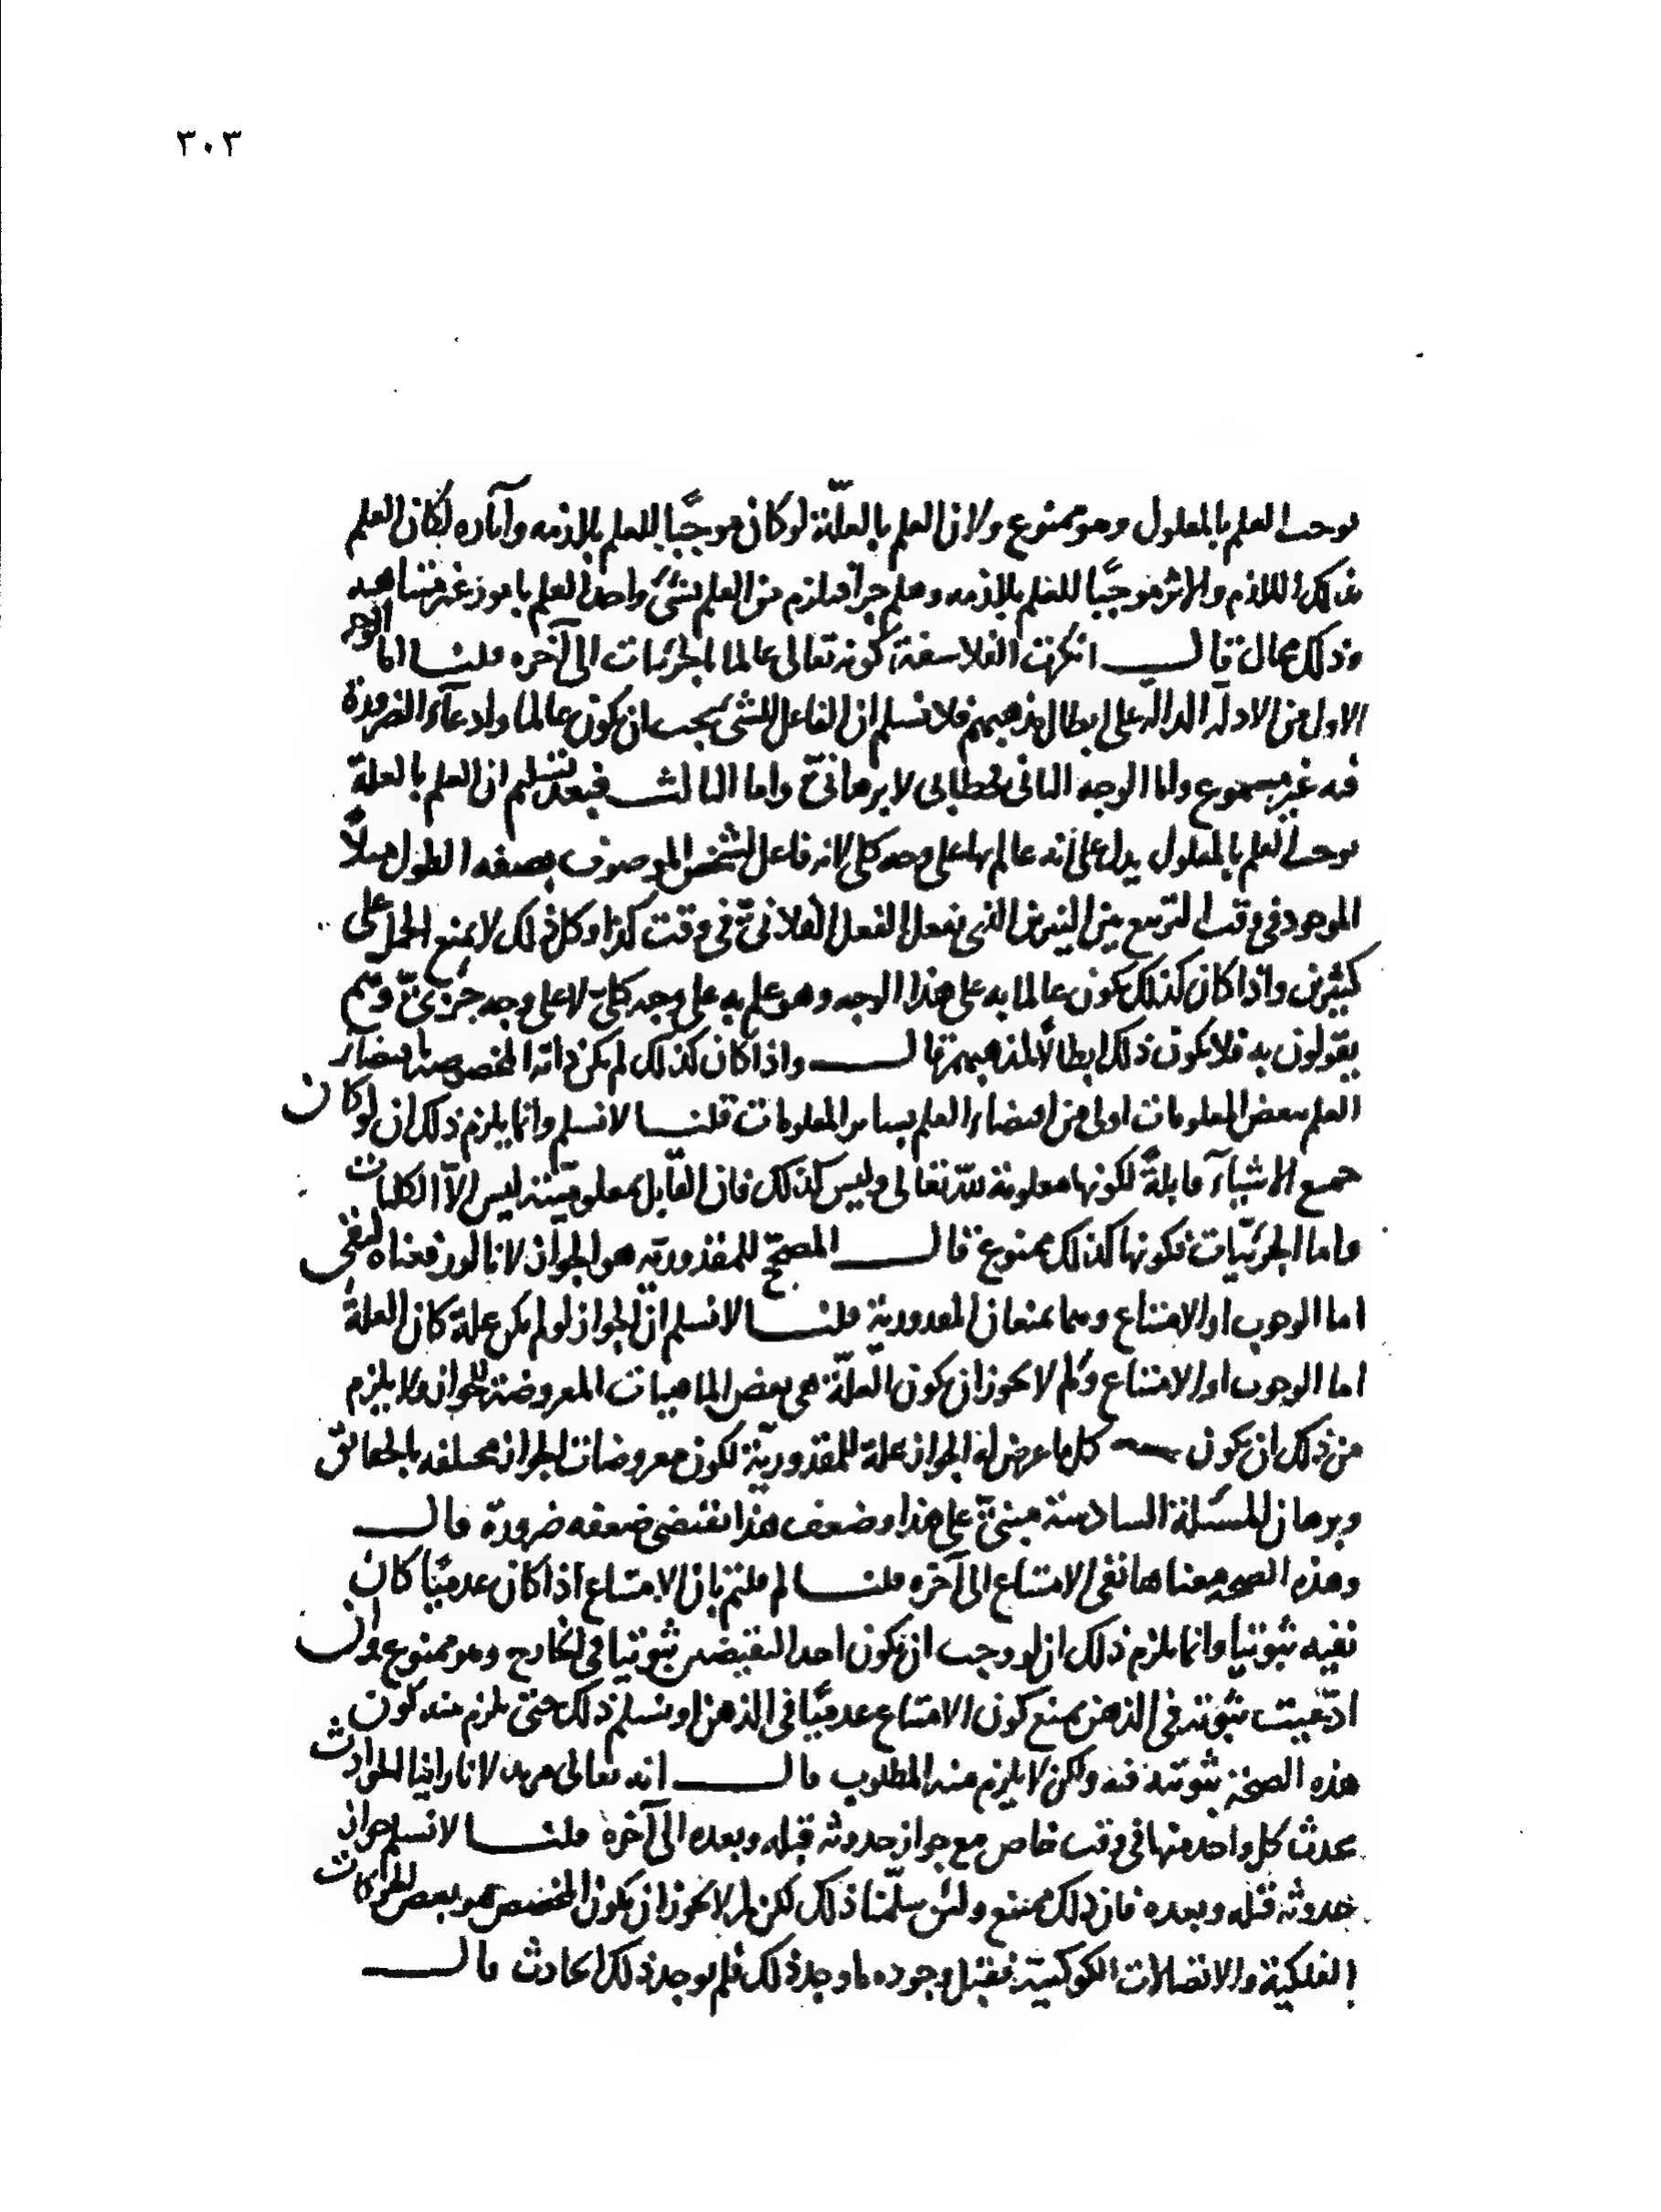 ٣٠٣
يوجب العلم بالمعلول وهو ممنوع ولان العلم بالعلّة لو كان موجبًا للعلم بلازمه وآثاره لكان العلم
بذلك اللازم والاثر موجبًا للعلم بلازمه وهلم جرا فيلزم من العلم بشئ واحد العلم بامور غير متناهيه
وذلك محال قال انكرت الفلاسفة كونه تعالى عالما بالجزئيات الى آخره قلنا اما الوجه
الاول من الادلة الدالة على ابطال مذهبهم فلا نسلم ان الفاعل للشئ يجب ان يكون عالما وادعآء الضرورة
فيه غير مسموع واما الوجه الثانى فخطابى لا برهانىّ واما الثالث فبعد تسليم ان العلم بالعلة
يوجب العلم بالمعلول يدل على انه عالم بها على وجه كلى لانه فاعل لشخص الموصوف بصفه الطول مثلًا
الموجود فى وقت التربيع بين النيرين الذى يفعل الفعل الفلانىّ فى وقت كذا وكل ذلك لا يمنع الحمل على
كثيرين واذا كان كذلك يكون عالما به على هذا الوجه وهو علم به على وجه كلىّ لا على وجه جزئىّ وهم
يقولون به فلا يكون ذلك ابطالًا لمذهبهم قال واذا كان كذلك لم يكن ذاته المخصوصة باقتضاء
العلم ببعض المعلومات اولى من اقتضاء العلم بساير المعلومات قلنا لا نسلم وانما يلزم ذلك ان لو كان
جميع الاشيآء قابلةً لكونها معلومة لله تعالى وليس كذلك فان القابل بمعلوميّته ليس الّا الكليات
واما الجزئيّات فكونها كذلك ممنوع قال المصحّح للمقدورية هو الجواز لانا لو رفعناه لبقى
اما الوجوب او الامتناع وهما يمنعان المقدورية قلنا لا نسلم ان الجواز لو لم يكن علة كان العلة
اما الوجوب او الامتناع ولم لا يجوز ان يكون العلّة هى بعض الماهيات المعروضة للجواز ولا يلزم
من ذلك ان يكون كل ما عرض له الجواز علة للمقدوريّة لكون معروضات الجواز مختلفه بالحقائق
وبرهان المسئلة السادسة مبنىّ على هذا وضعف هذا يقتضى ضعفه ضرورة قال
وهذه الصحه معناها نفى الامتناع الى آخره قلنا لم قلتم بان الامتناع اذا كان عدميًا كان
نفيه ثبوتيا وانما يلزم ذلك ان لو وجب ان يكون احد النقيضين ثبوتيا فى الخارج وهو ممنوع وان
ادّعيت ثبوته فى الذهن يمنع كون الامتناع عدميًا فى الذهن او نسلم ذلك حتى يلزم منه كون
هذه الصحّة ثبوتية فيه ولكن لا يلزم منه المطلوب قال انه تعالى مريد لانا راينا الحوادث
يحدث كل واحد منها فى وقت خاص مع جواز حدوثه قبله وبعده الى آخره قلنا لا نسلم جواز
حدوثه قبله وبعده فان ذلك ممتنع ولئن سلّمنا ذلك لكن لم لا يجوز ان يكون المخصص هو بعض الحركات
الفلكية والاتصالات الكوكبيّة فقبل وجوده ما وجد ذلك فلم يوجد ذلك الحادث قال